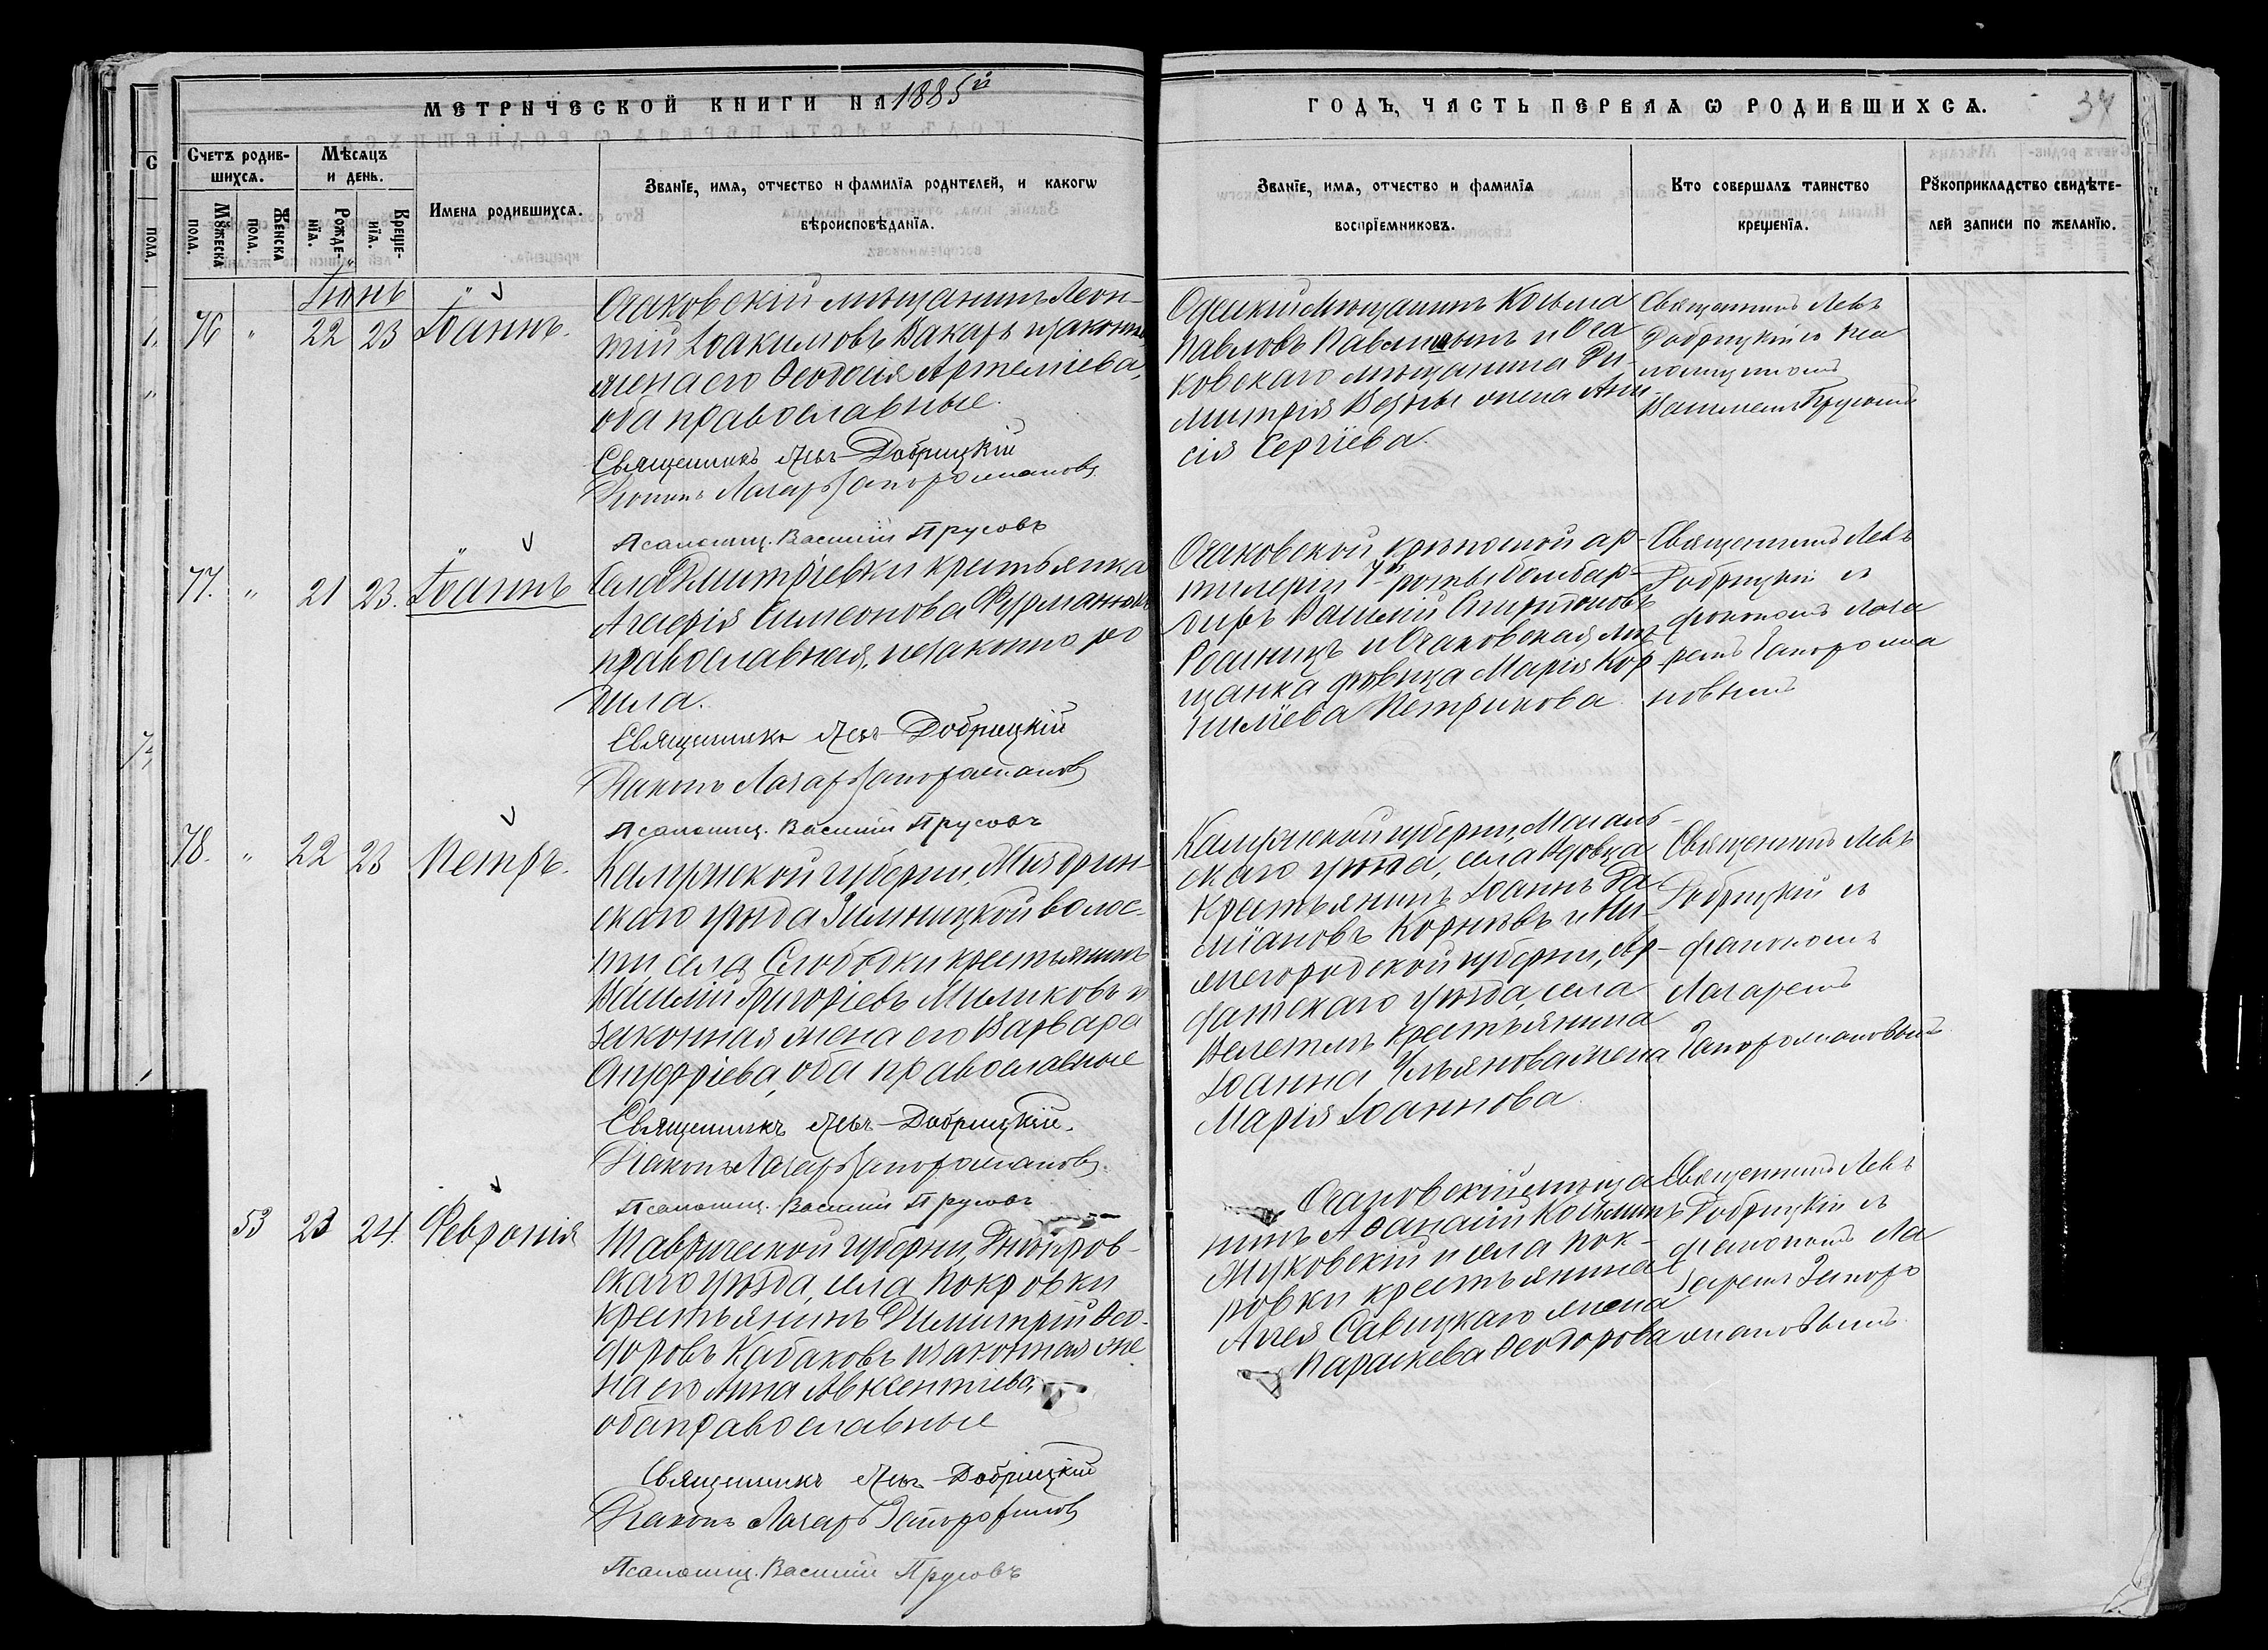 МЕТРИЧЕСКОЙ КНИГИ НА 1885й
ГОДЪ, ЧАСТЬ ПЕРВАѦ Ѡ РОДИВШИХСѦ.
34
Счетъ родив-
шихсѧ.
Мѣсѧцъ
и день.
Имена родившихсѧ.
Званїе, имѧ, отчество и фамилїѧ родителей, и какогѡ
вѣроисповѣданїѧ.
Мꙋжеска
пола.
Женска
пола.
Рожде-
нїѧ.
Креще-
нїѧ.
Званїе, имѧ, отчество и фамилїѧ
воспрїемниковъ.
Кто совершалъ таинство
крещенїѧ.
Рꙋкоприкладство свидѣте-
лей записи по желанїю.
Іюнь
76 " 22 23 Іоаннъ.
Очаковскій мѣщанинъ Леон-
тій Іоакимовъ Вакаръ и законная
жена его Ѳеодосія Артеміева,
оба православные.
Священникъ Левъ Добрицкій
Діаконъ Лазарь Запорожановъ
Псаломщ. Василій Прусовъ
Одесскій мѣщанинъ Косьма
Павловъ и Оча
ковскаго мѣщанина Ди-
митрія жена Ани
сія Сергіева.
Священникъ Левъ
Добрицкій съ пса
ломщикомъ
Василіемъ Прусовымъ
77. " 21 23. Іоаннъ
Села Дмитріевки крестьянка
Агафія Симеонова Фурманюкъ
православная, незаконно ро
дила.
Священникъ Левъ Добрицкій
Діаконъ Лазарь Запорожановъ
Псаломщ. Василій Прусовъ
Очаковской крѣпостной ар-
тилеріи 4й роты бомбар-
диръ Василій Спиридоновъ
и Очаковская мѣ
щанка дѣвица Марія Кор
нилїева Петрикова.
Священникъ Левъ
Добрицкій съ
діакономъ Лаза
ремъ Запорожа
новымъ
78. " 22 23 Петръ.
Калужской губерніи, Мизгрин-
скаго уѣзда волос-
ти села Слободки крестьянинъ
Василій Григоріевъ Миляковъ и
законная жена его Варвара
Онуфріева, оба православные
Священникъ Левъ Добрицкій.
Діаконъ Лазарь Запорожановъ.
Псаломщ. Василій Прусовъ
Калужской губерніи, Мосаль-
скаго уѣзда, села
Крестьянинъ Іоаннъ Да
міановъ Корнѣевъ и Ни-
жегородской губерніи, Ар-
датскаго уѣзда, села
Велетьмъ крестьянина
Іоанна Ульянова жена
Марія Іоаннова.
Священникъ Левъ
Добрицкій съ
діакономъ
Лазаремъ
Запорожановымъ
53 23 24. Февронія
Таврической губерніи, Днѣпров-
скаго уѣзда, села Покровки
крестьянинъ Димитрій Ѳео-
доровъ Кабаковъ и законная же
на его Анна Авксентіева,
оба православные
Священникъ Левъ Добрицкій
Діаконъ Лазарь Запорожановъ
Псаломщ. Василій Прусовъ
Очаковскій мѣща
нинъ Аѳанасій Косьминъ
Жуковскій и села Пок-
ровки крестьянина
Аггея Савицкаго жена
Параскева Ѳеодорова
Священникъ Левъ
Добрицкій съ
діакономъ Ла
заремъ Запоро
жановымъ.